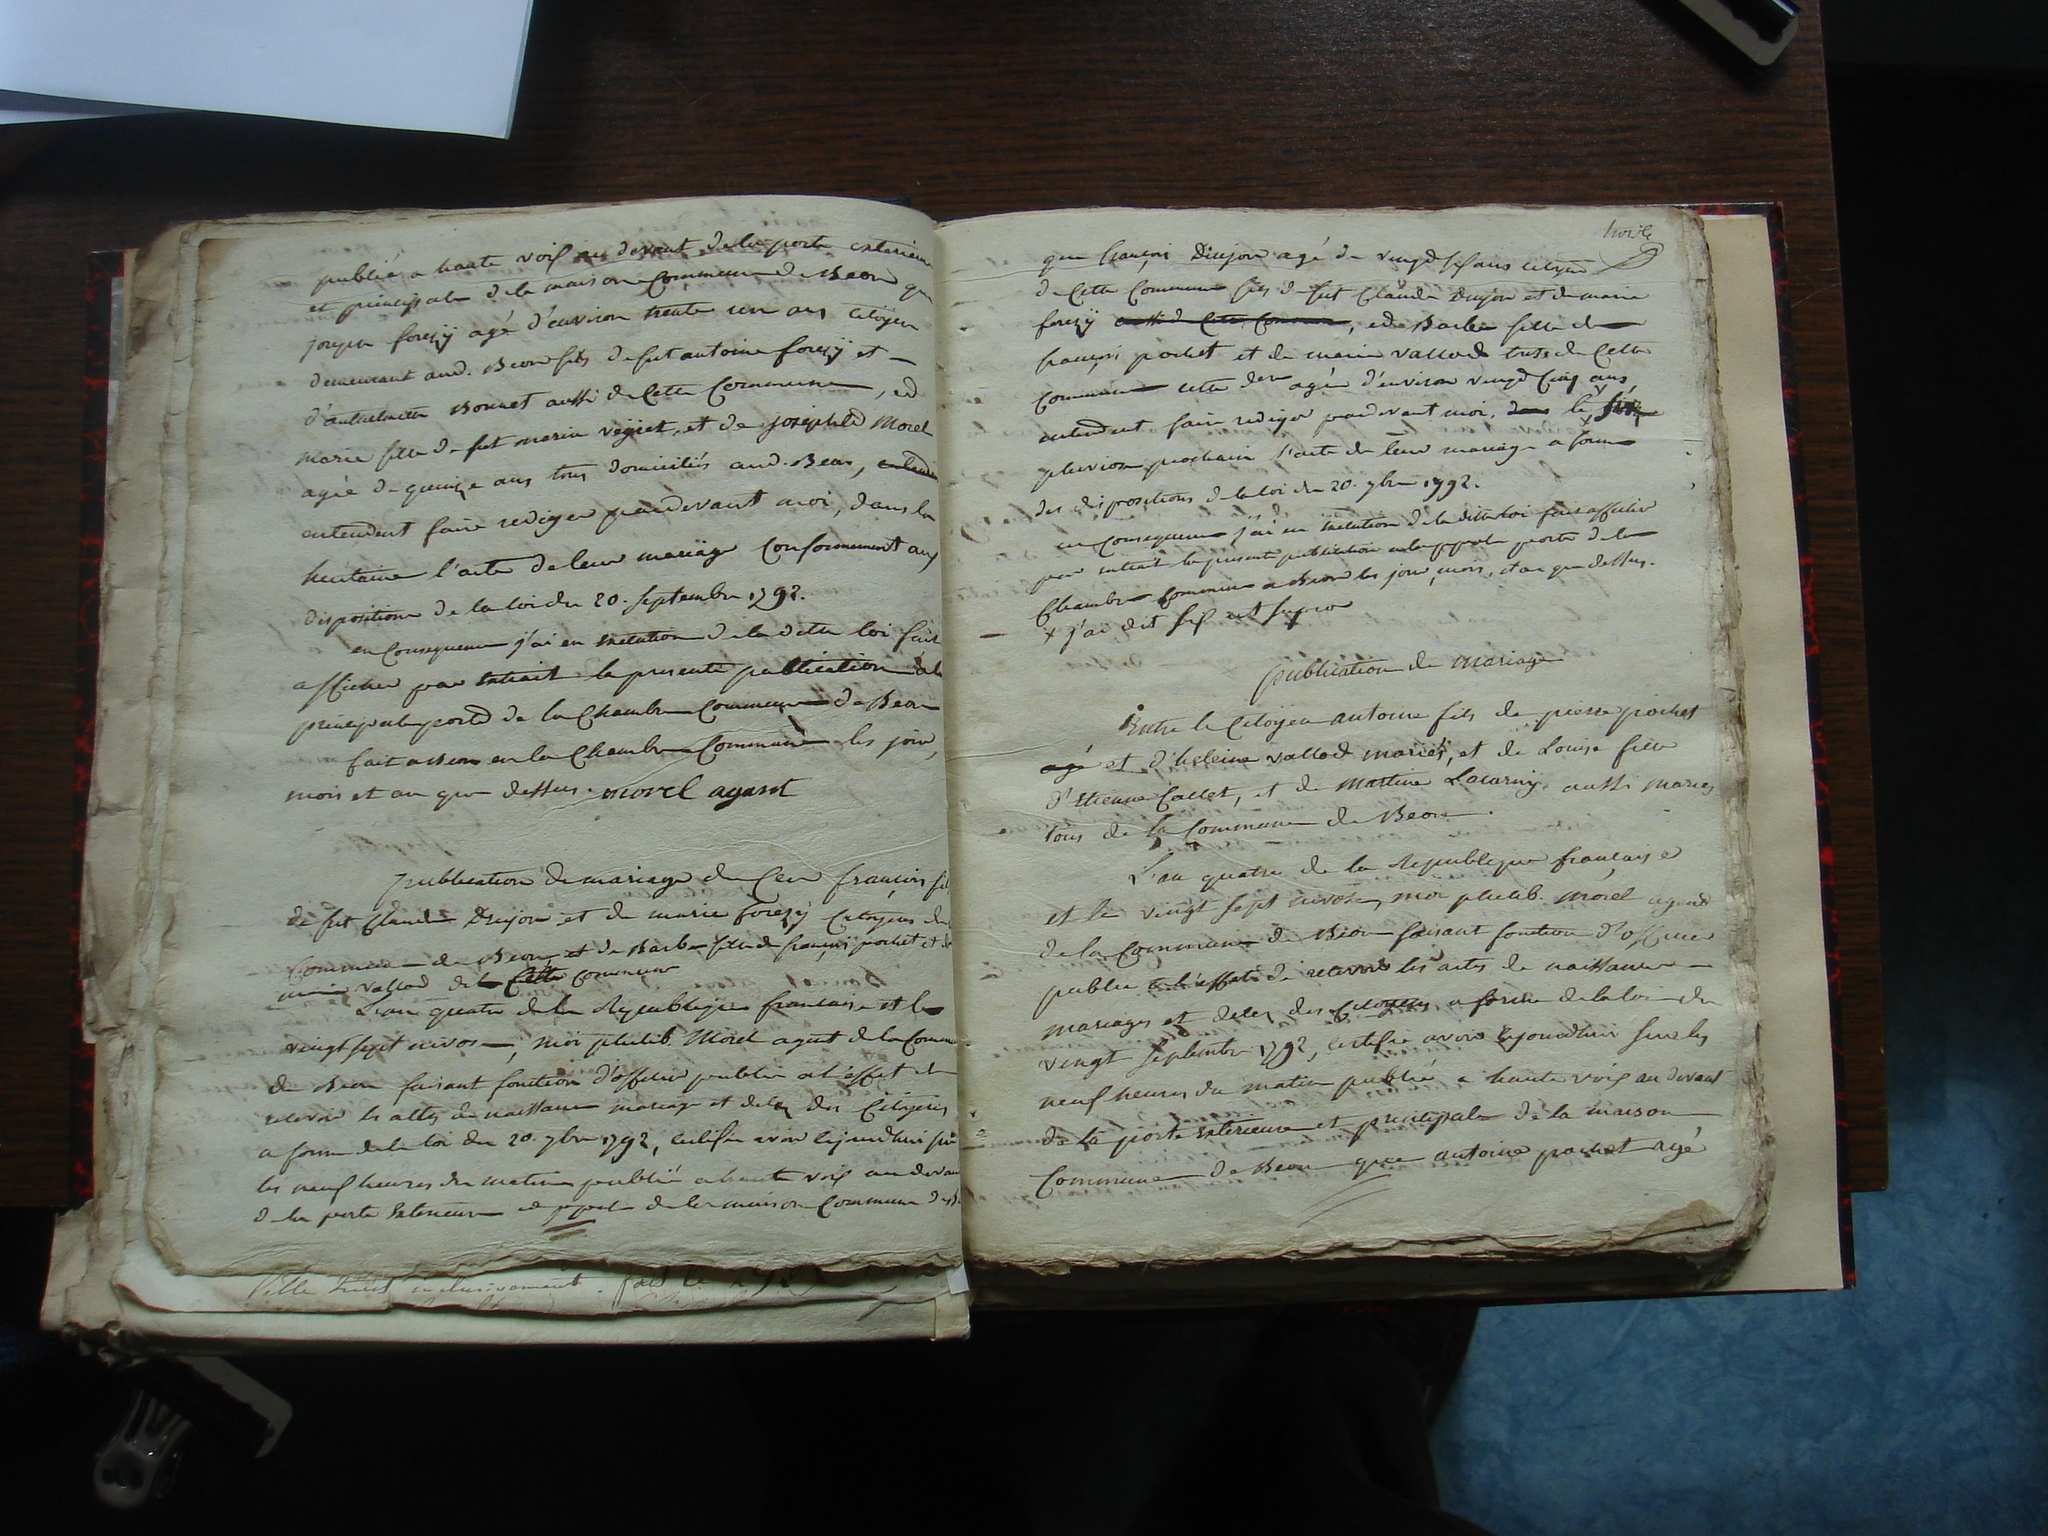 publié a haute voix au devant de la porte exterieure
et principale de la maison Commune de Beon que
joseph forezÿ agé d'environ trente un ans citoÿen
demeurant aud. Beon fils de fut antoine forezÿ et
d'anthelmette Bonnet aussi de Cette Commune, ed
marie fille de fut marin veÿret, et de josephtd Morel
agée de quinze ans tous domiciliés aud. Beon,
entendent faire rediger pardevant moi, dans la
huitaine l'acte de leur mariage Conformement aux
dispositions de la loi du 20. septembre 1792.
en Consequence j'ai en execution de la ditte loi fait
afficher par extrait la presente publication a la
principale porte de la Chambre Commune de Beon
fait a Beon en la Chambre Commune les jour,
mois et an que dessus. morel agent
publication de mariage du Cen françois fils
de fut Claude Drujon et de marie forezÿ Citoyens de la
Commune de Beon et de Barbe fille de françois pochet et de
marie vallod de Cette Commune
L'an quatre de la Republique francaise et le
vingt sept nivose, moi philib. Morel agent de la Commune
de Beon faisant fonction d'officier public a l'effet de
recevoir les actes de naissance mariage et deces des Citoyens
a forme de la loi du 20. 7bre 1792, certifie avoir cejourdhui sur
les neuf heures du matin publié a haute voix au devant
de la porte exterieure et ppale de la maison Commune de B.
troise
que françois Drujon agé de vingt six ans citoyen
de Cette Commune fils de fut Claude Drujon et de marie
forezÿ aussi de Cette Commune, ed Barbe fille de
françois pochet et de marie vallod tous de Cette
Commune cette der agée d'environ vingt Cinq ans,
entendent faire rediger pardevant moi, le six
pluviose prochain l'acte de leur mariage a forme
des dispositions de la loi du 20. 7bre 1792.
en Consequence j'ai en execution de la ditte loi fait afficher
par extrait la presente publication a la ppale porte de la
Chambre Commune a Beon les jour, mois, et an que dessus.
+ j'ai dit six ut supra
publication de mariage
Entre le Citoÿen antoine fils de pierre pochet
agé et d'heleine vallod mariés, et de Louise fille
d'Etienne Callet, et de Martine Lacarnÿ, aussi mariés
tous de la Commune de Beon.
L'an quatre de la Republique française
et le vingt sept nivose, moi philib. Morel agent
de la Commune de Beon faisant fonction d'officier
public a l'effet de recevoir les actes de naissance
mariages et deces des Citoyens a forme de la loi du
vingt septembre 1792, certifie avoir cejourdhui sur les
neuf heures du matin publié a haute voix au devant
de la porte exterieure et principale de la maison
Commune de Beon que antoine pochet agé